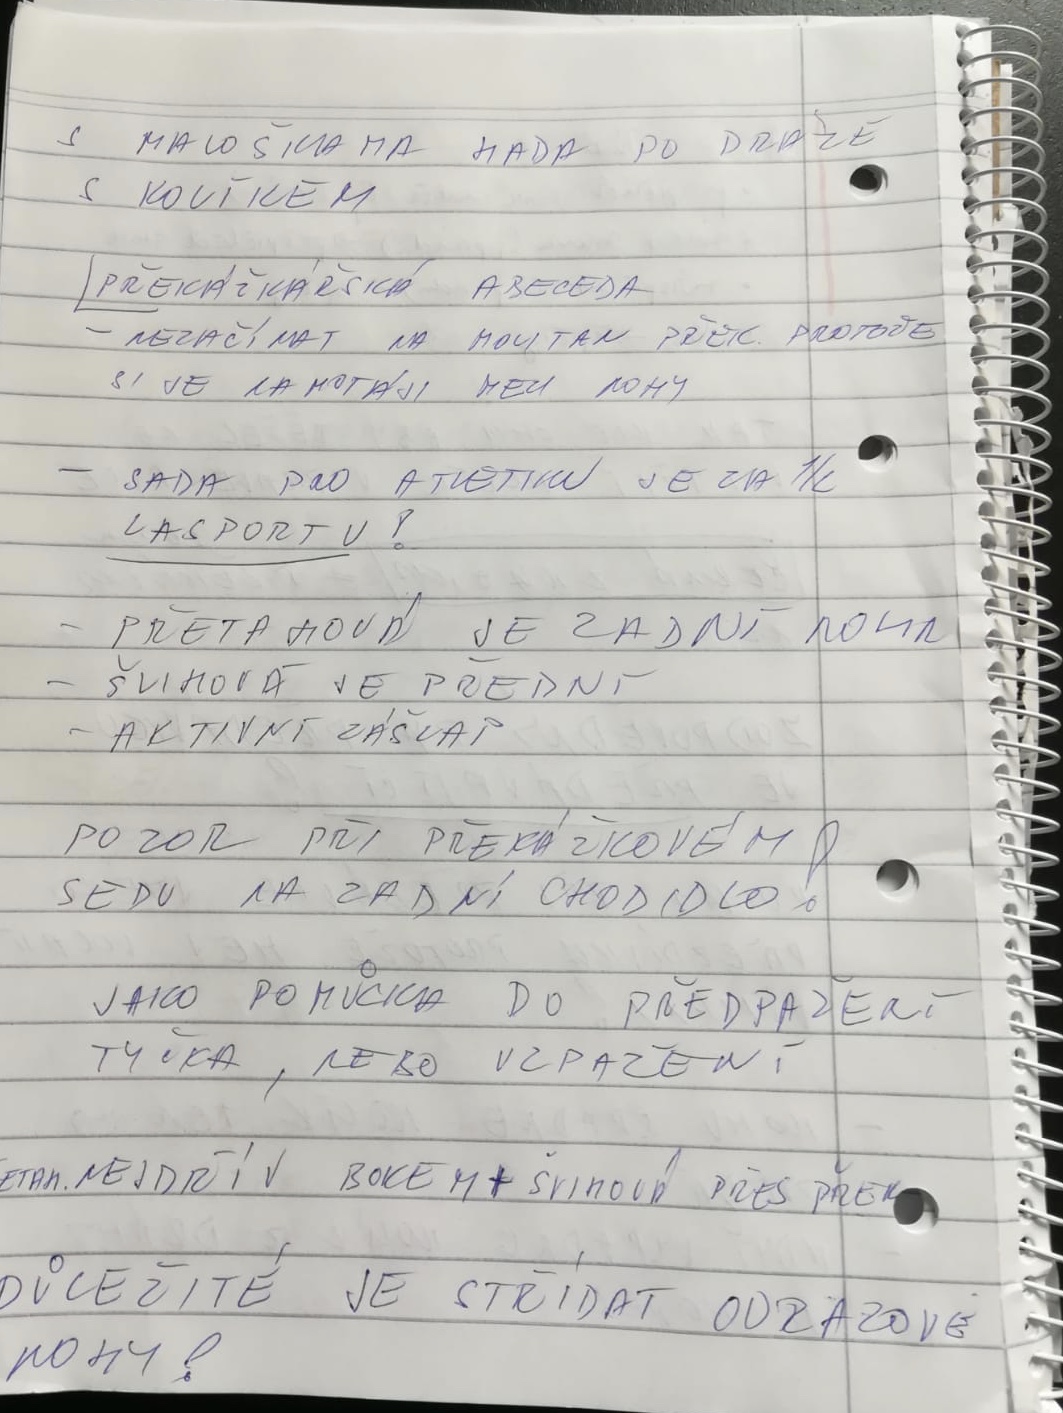 S MALOŠKAMA HADA PO DRÁŽE
S KOLÍKEM
PŘEKÁŽKÁŘSKÁ ABECEDA
- NEZAČÍNAT NA MOLITAN PŘEK. PROTOŽE
SI JE NAMOTÁJÍ MEZI NOHY
- SADA PRO ATLETIKU JE ZA 1/2
LASPORTU!
- PŘETAHOVÁ JE ZADNÍ NOHA
- ŠVIHOVÁ JE PŘEDNÍ
- AKTIVNÍ ZÁŠLAP
POZOR PŘI PŘEKÁŽKOVÉM
SEDU NA ZADNÍ CHODIDLO!
JAKO POMŮCKA DO PŘEDPAŽENÍ
TYČKA, NEBO VZPAŽENÍ
ETAH. NEJDŘÍV BOKEM + ŠVIHOVÁ PŘES PŘEK
DŮLEŽITÉ JE STŘÍDAT ODRAZOVÉ
NOHY!